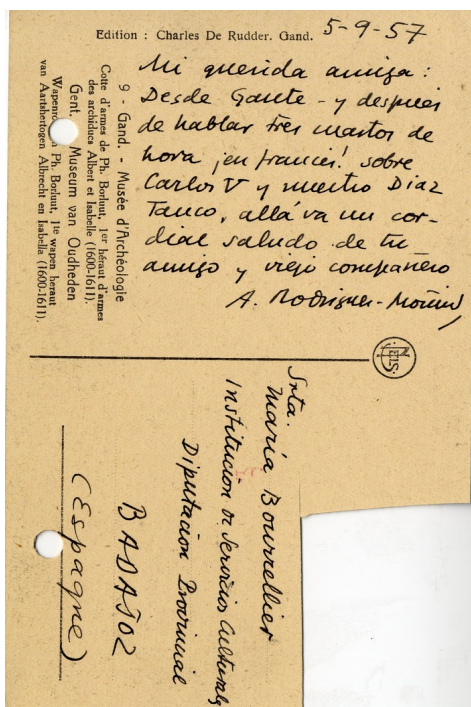 Edition : Charles De Rudder. Gand.
5-9-57
Mi querida amiga :
Desde Gante - y después
de hablar tres cuartos de
hora ¡en francés! sobre
Carlos V y nuestro Díaz
Tanco, allá va un cor-
dial saludo de tu
amigo y viejo compañero
A. Rodríguez-Moñino
9 - Gand. - Musée d'Archéologie
Cotte d'armes de Ph. Borluut, 1er héraut d'armes
des archiducs Albert et Isabelle (1600-1611).
Gent. Museum van Oudheden
Ph. Borluut, 1te wapen heraut
van Aartshertogen Albrecht en Isabelle (1600-1611).
NELS
Srta.
María Bourrellier
Institución de Servicios Culturales
Diputación Provincial
BADAJOZ
(Espagne)